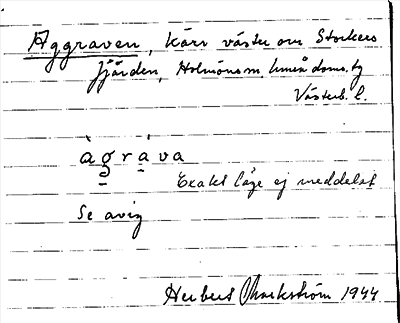 Aggraven, Kärr väster om Storkers
fjärden, Holmöns sn. Umeå doms.tg
Västerb. l.
àgráva
Exakt läge ej meddelat
Se avig
Herbert Markström 1944